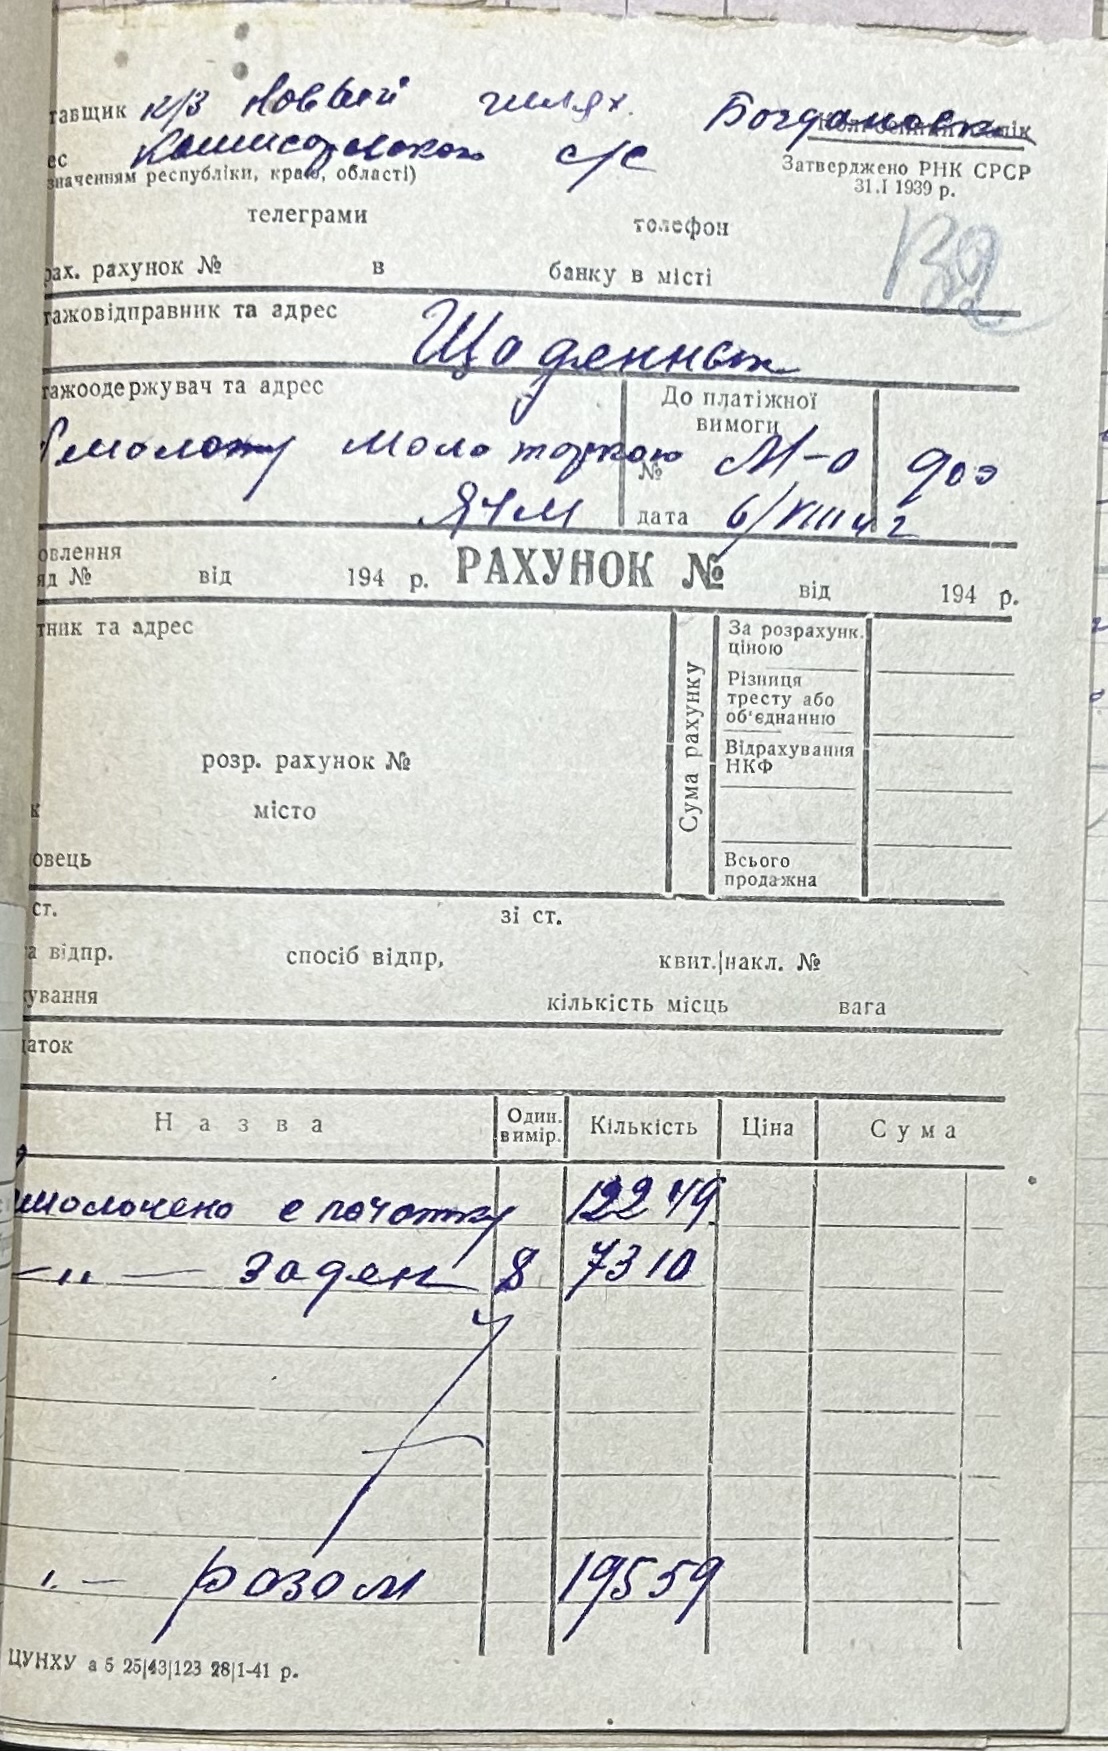 тавщик к/з Новый шлях. Богдановск
Колгоспний
ес Комисаровского с/с
Затверджено РНК СРСР
значенням республіки, краю, області)
31.I 1939 р.
телеграми телефон
132
рах. рахунок № в банку в місті
тажовідправник та адрес
Щоденник
тажоодержувач та адрес До платіжної
вимоги
молоту молотаркою № М-о 900
ЯЧМ дата 6/VIII 42
овлення
яд № від 194 р. РАХУНОК № від 194 р.
тник та адрес
Сума рахунку
За розрахунк.
ціною
Різниця
тресту або
об'єднанню
розр. рахунок №
Відрахування
НКФ
к місто
овець
Всього
продажна
ст. зі ст.
а відпр. спосіб відпр, квит.|накл. №
ування кількість місць вага
даток
Назва Один. вимір. Кількість Ціна Сума
молочено с початку 12249
—„— за ден 8 7310
„— розом 19559
ЦУНХУ а 5 25|43|123 28|1-41 р.